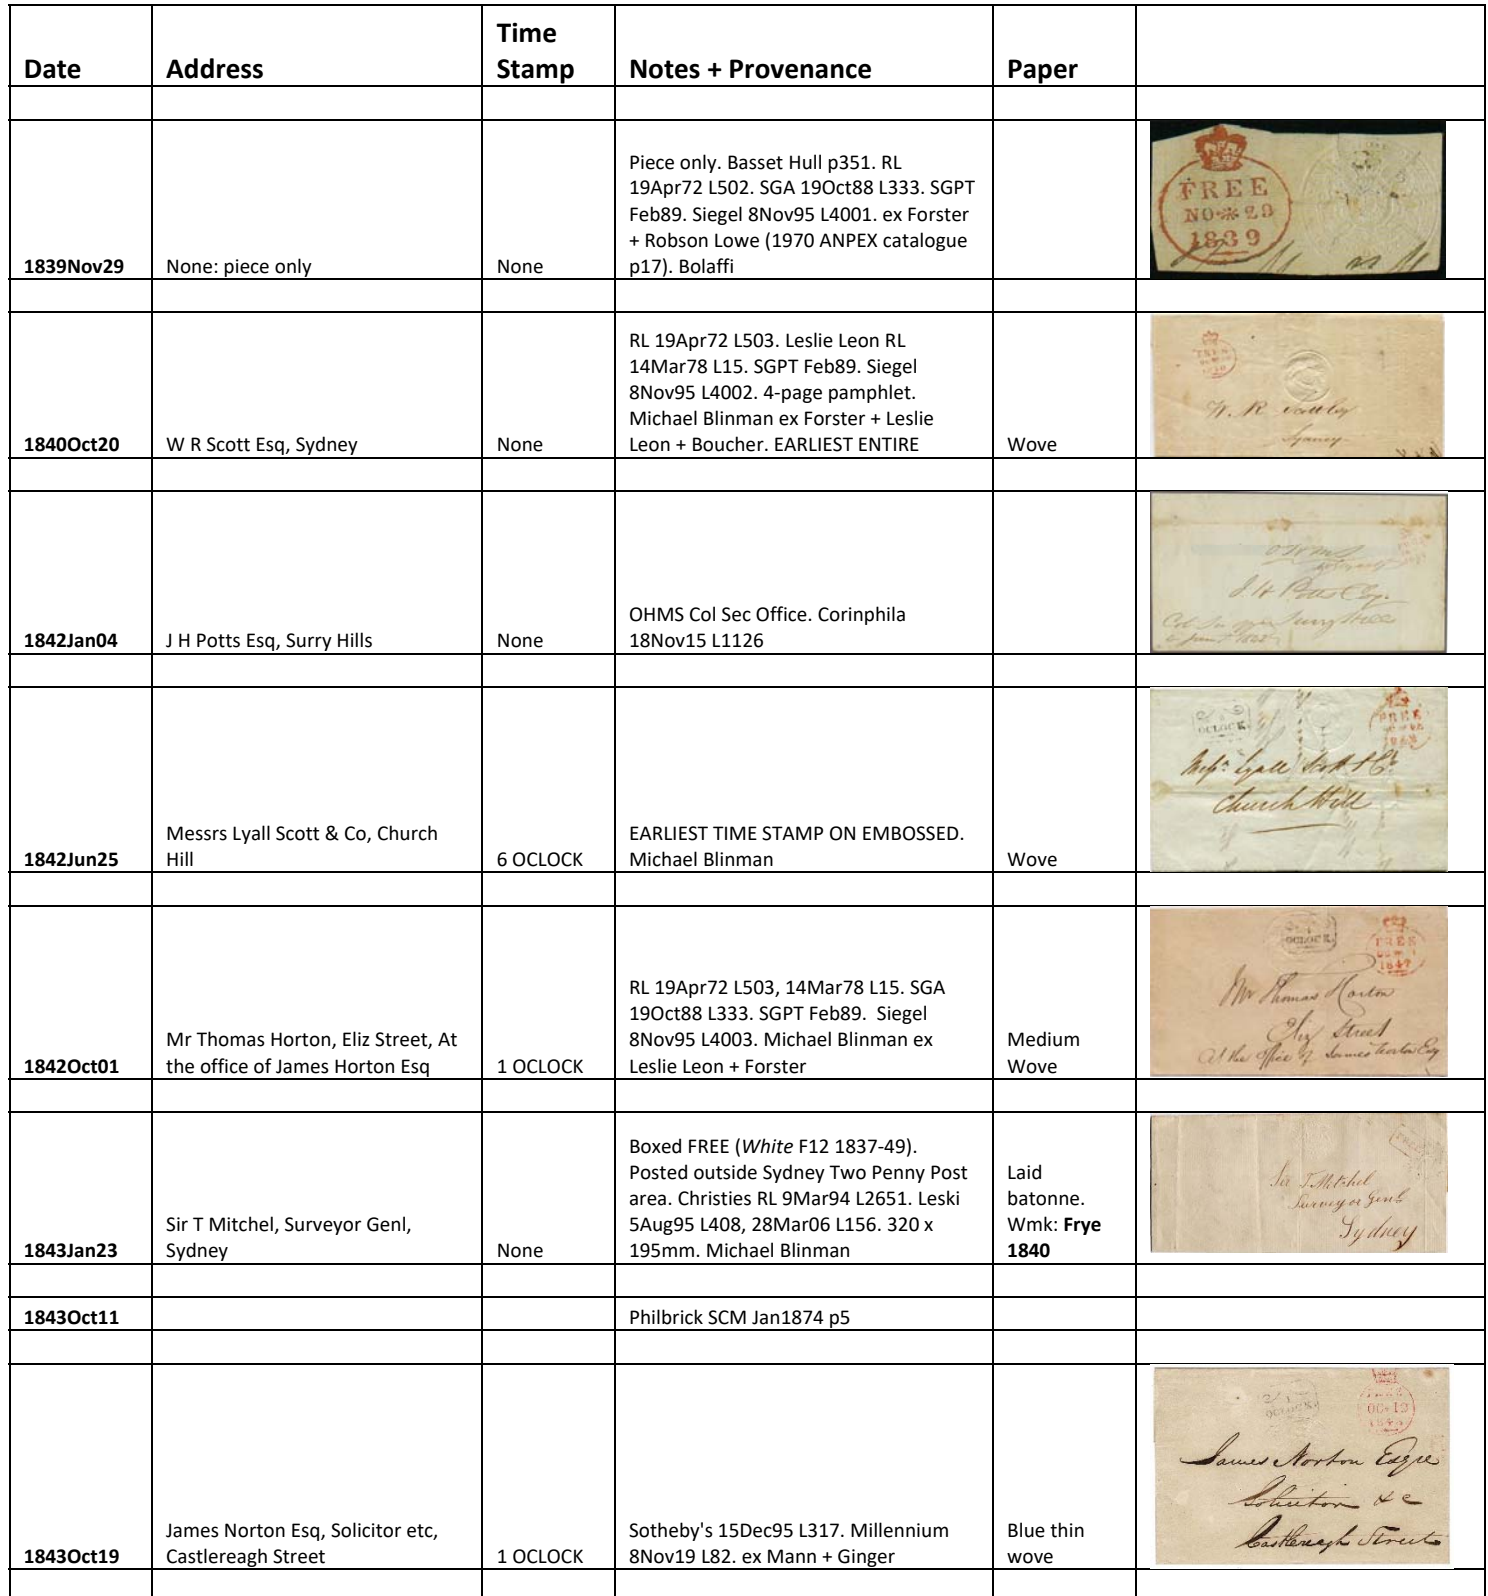 Date Address Time Stamp Notes + Provenance Paper
1839Nov29
None: piece only
None
Piece only. Basset Hull p351. RL
19Apr72 L502. SGA 19Oct88 L333. SGPT
Feb89. Siegel 8Nov95 L4001. ex Forster
+ Robson Lowe (1970 ANPEX catalogue
p17). Bolaffi
FREE
NO 29
1839
1840Oct20
W R Scott Esq, Sydney
None
RL 19Apr72 L503. Leslie Leon RL
14Mar78 L15. SGPT Feb89. Siegel
8Nov95 L4002. 4-page pamphlet.
Michael Blinman ex Forster + Leslie
Leon + Boucher. EARLIEST ENTIRE
Wove
W. R Scott Esq
Sydney
1842Jan04
J H Potts Esq, Surry Hills
None
OHMS Col Sec Office. Corinphila
18Nov15 L1126
J H Potts Esq.
Surry Hills
1842Jun25
Messrs Lyall Scott & Co, Church
Hill
6 OCLOCK
EARLIEST TIME STAMP ON EMBOSSED.
Michael Blinman
Wove
OCLOCK.
FREE
Messrs Lyall Scott & Co
Church Hill
1842Oct01
Mr Thomas Horton, Eliz Street, At
the office of James Horton Esq
1 OCLOCK
RL 19Apr72 L503, 14Mar78 L15. SGA
19Oct88 L333. SGPT Feb89.  Siegel
8Nov95 L4003. Michael Blinman ex
Leslie Leon + Forster
Medium
Wove
1
OCLOCK.
FREE
Mr Thomas Horton
Eliz Street
At the office of James Horton Esq
1843Jan23
Sir T Mitchel, Surveyor Genl,
Sydney
None
Boxed FREE (White F12 1837-49).
Posted outside Sydney Two Penny Post
area. Christies RL 9Mar94 L2651. Leski
5Aug95 L408, 28Mar06 L156. 320 x
195mm. Michael Blinman
Laid
batonne.
Wmk: Frye
1840
FREE
Sir T Mitchel
Surveyor Genl
Sydney
1843Oct11
Philbrick SCM Jan1874 p5
1843Oct19
James Norton Esq, Solicitor etc,
Castlereagh Street
1 OCLOCK
Sotheby's 15Dec95 L317. Millennium
8Nov19 L82. ex Mann + Ginger
Blue thin
wove
1
OCLOCK.
FREE
OC 19
1843
James Norton Esqre
Solicitor &c
Castlereagh Street